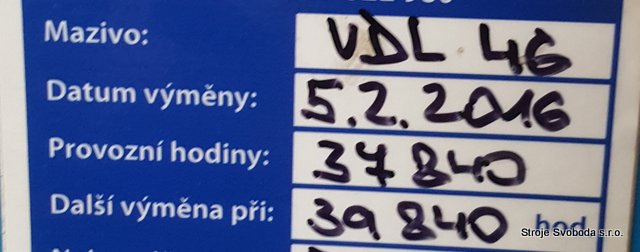 Mazivo: VDL 46
Datum výměny: 5.2.2016
Provozní hodiny: 37 840
Další výměna při: 39 840 hod
Stroje Svoboda s.r.o.